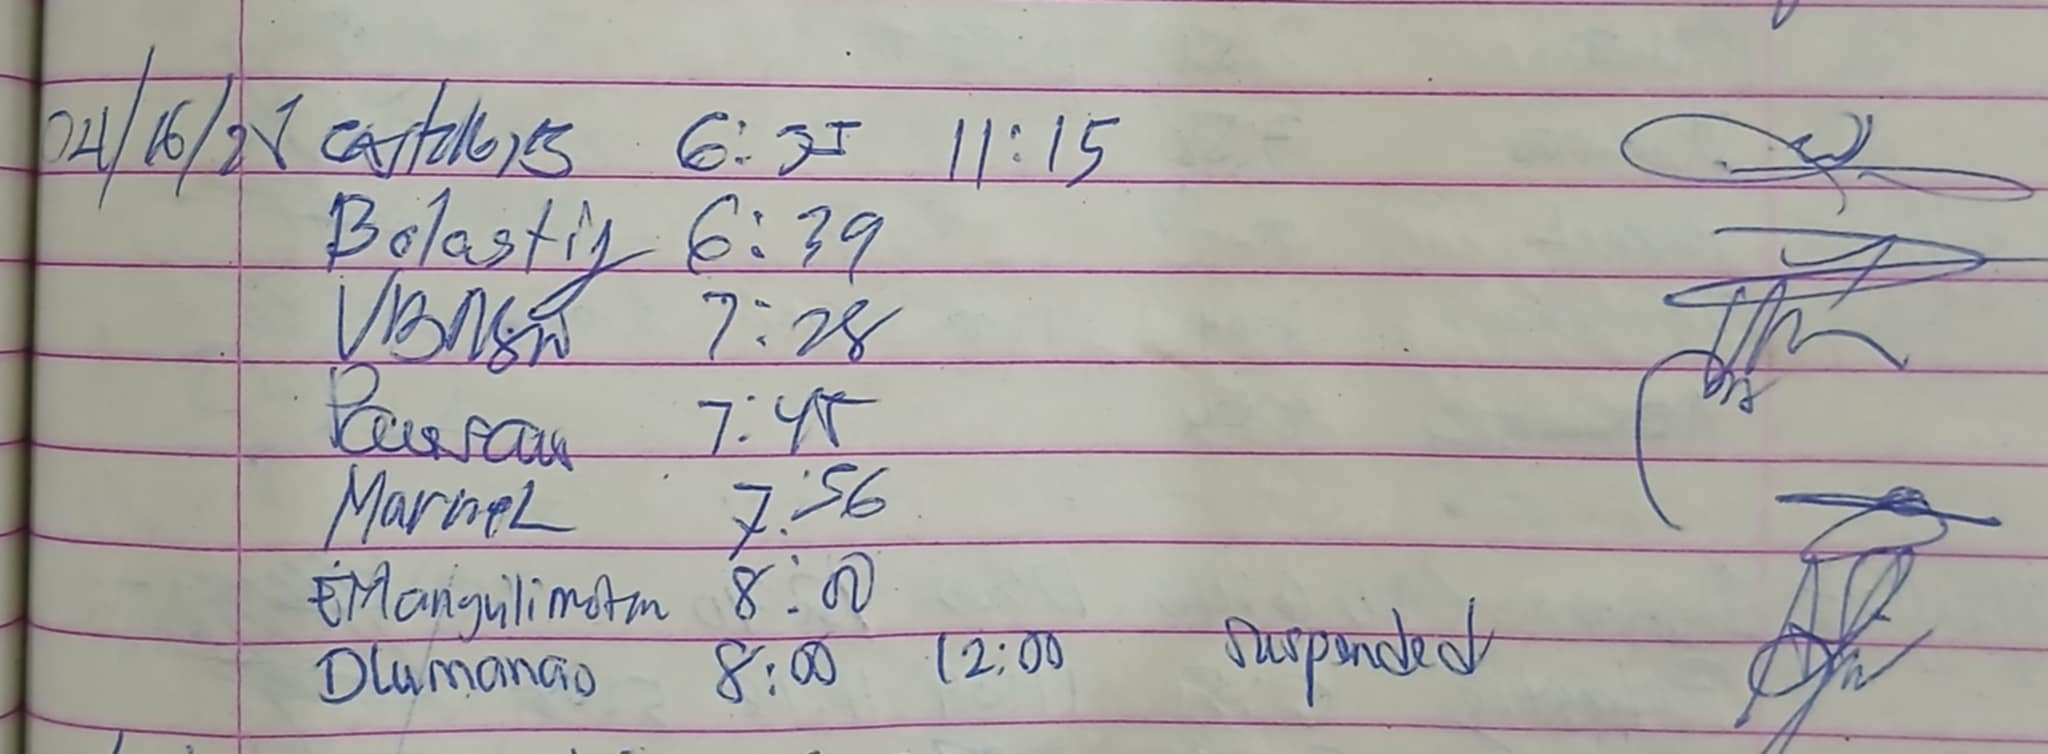 04/16/25 6:35 11:15
Bolastig 6:39
7:28
7:45
Marnel 7:56
EMangulimotan 8:00
DLumanao 8:00 12:00 suspended